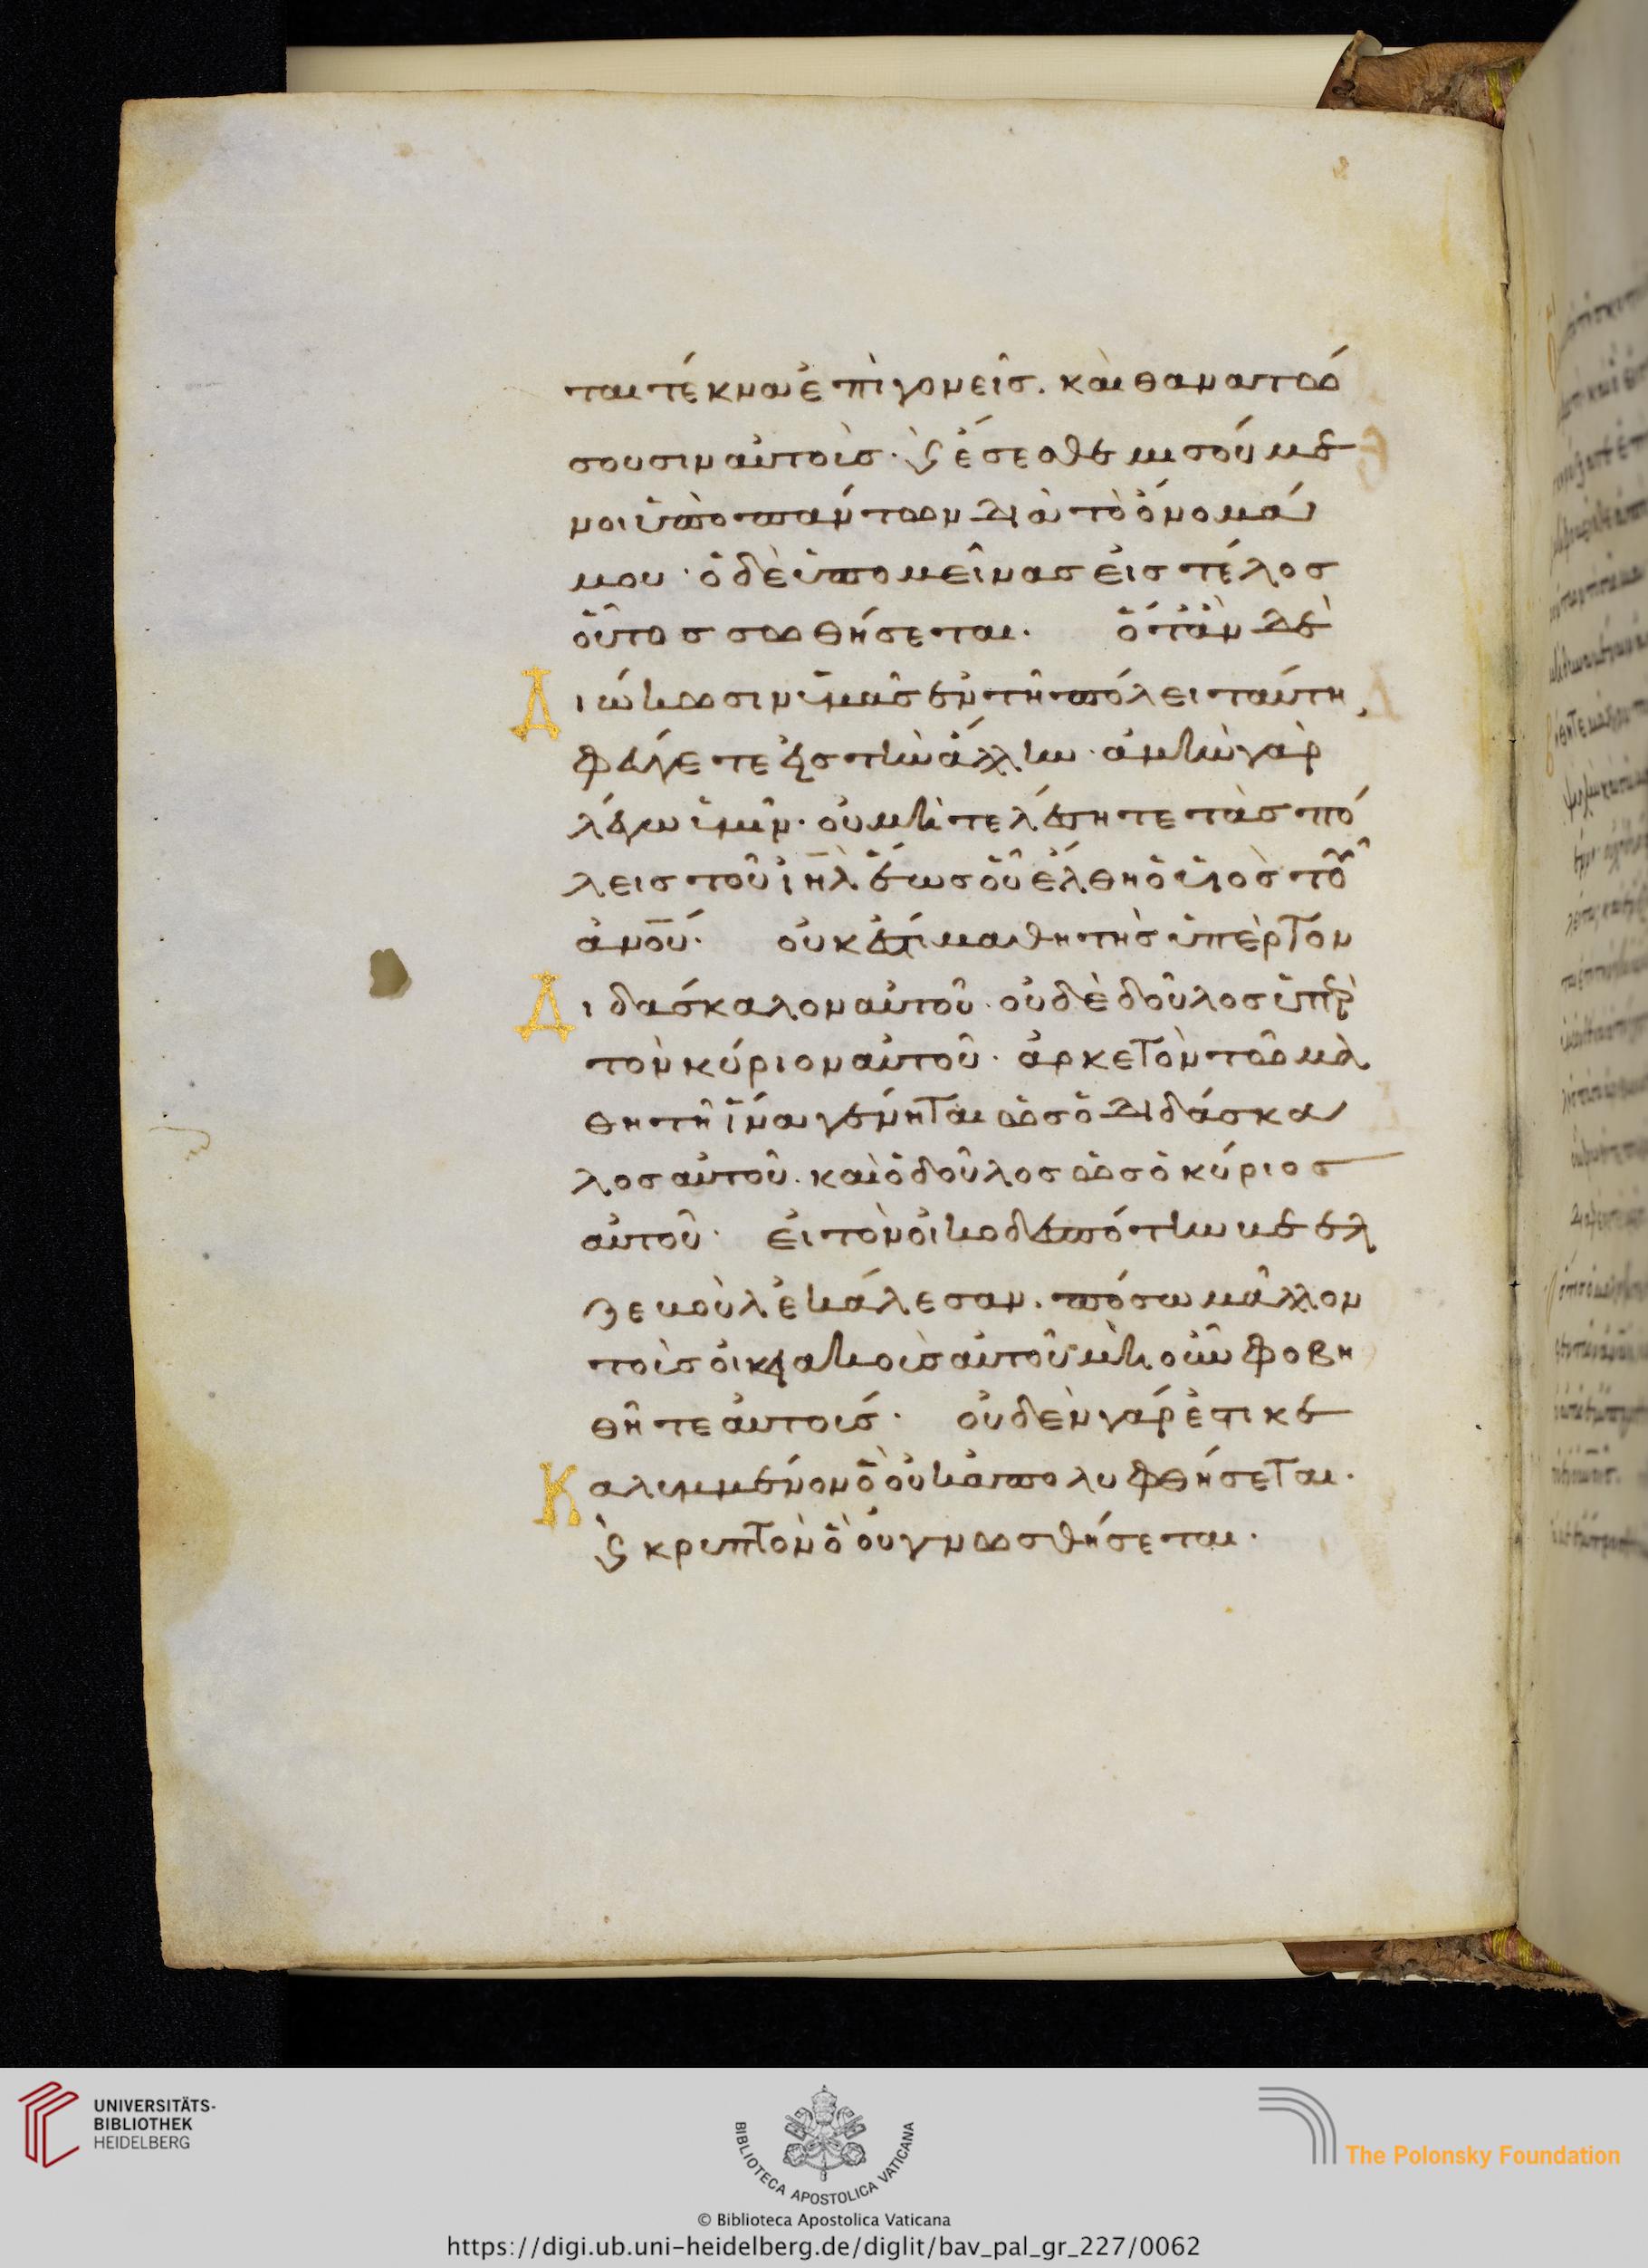 ται τέκνα ἐπὶ γονεῖσ. καὶ θανατώ
σουσιν αὐτοὺσ· ϗ ἔσεσθε μισούμε
νοι ὑπὸ πάντων διὰ τὸ ὄνομά
μου· ὁ δὲ ὑπομείνασ εἰσ τέλοσ
οὗτοσ σωθήσεται. ὅταν δὲ
Διώκωσιν ὑμᾶσ ἐν τῆ πόλει ταύτη,
φεύγετε εἰσ τὴν ἄλλην· ἀμὴν γὰρ
λέγω ὑμῖν· οὐ μὴ τελέσητε τὰσ πό
λεισ τοῦ ἰηλ ἕωσ οὗ ἔλθη ὁ υἱὸσ τοῦ
ἀνου. οὐκ ἔστι μαθητὴσ ὑπὲρ τὸν
Διδάσκαλον αὐτοῦ. οὐδὲ δοῦλοσ ὑπὲρ
τὸν κύριον αὐτοῦ. ἀρκετὸν τῶ μα
θητῆ ἵνα γένηται ὡσ ὁ διδάσκα
λοσ αὐτοῦ. καὶ ὁ δοῦλοσ ὡσ ὁ κύριοσ
αὐτοῦ. εἰ τὸν οἰκοδεσπότην βεελ
ζεβοὺλ ἐκάλεσαν. πόσω μᾶλλον
τοὺσ οἰκειακοὺσ αὐτοῦ· μὴ οὖν φοβη
θῆτε αὐτούσ. οὐδὲν γάρ ἐστι κε
Καλυμμένον ὃ οὐκ ἀποκαλυφθήσεται.
ϗ κρυπτὸν ὃ οὐ γνωσθήσεται.
UNIVERSITÄTS-
BIBLIOTHEK
HEIDELBERG
BIBLIOTECA APOSTOLICA VATICANA
The Polonsky Foundation
© Biblioteca Apostolica Vaticana
https://digi.ub.uni-heidelberg.de/diglit/bav_pal_gr_227/0062